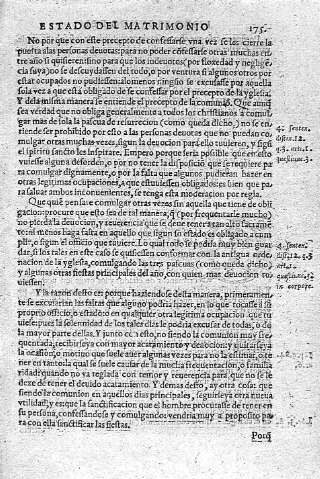 ESTADO DEL MATRIMONIO 175.
No por que con este precepto de confessarse vna vez se les cierre la
puerta a las personas deuotas: para no poder cõfessarse otras muchas en-
tre año si quisieren: sino para que los indeuotos (por floxedad y negligẽ-
cia suya) no se descuydassen del todo, o por ventura si algunos otros por
estar ocupados no pudiessen: alomenos ninguno se escusasse por aquella
sola vez a que està obligado de se confessar por el precepto de la yglesia.
Y dela misma manera se entiende el precepto de la comuniõ. Que aunq̃
sea verdad que no obliga generalmente a todos los christianos a comul-
gar mas de sola la pascua de resurrection (como queda dicho,) no se en-
tiende ser prohibido por esto a las personas deuotas que no puedan co-
mulgar otras muchas vezes, segun la deuocion para ello tuuieren, y segun
el spiritu sancto les inspirare. Empero porque seria possible que en esto
vuiesse alguna deforden, o por no tener la disposiciõ que se requiere pa-
ra comulgar dignamente, o por la falta que algunos pudieran hazer en
otras legitimas occupaciones, a que estuuiessen obligados: es bien que pa
ra saluar ambos inconuenientes, se tenga esta moderacion por regla.
Que quiẽ pensare comulgar otras vezes sin aquella que tiene de obli-
gacion: procure que esto sea de tal manera, q̃ (por frequentarse mucho)
no pierda la deuocion, y reuerencia que se deue tener a tan alto sacramẽ-
to: ni menos haga falta en aquello que segun su estado es obligado a cum-
plir, o segun el officio que tuuiere. Lo qual todo se podria muy bien guar
dar, si los tales en este caso se quisiessen conformar con la antigua orde-
nacion de la yglesia, comulgando las tres pascuas (como queda dicho)
y algunas otras fiestas principales del año, con quien mas deuocion tu-
uiessen.
Y la razon desto es: porque haziendose desta manera, primeramen-
te se escusarian las faltas que alguno podria hazer, en lo que tocasse a su
proprio officio, o estado: o en qualquier otra legitima ocupacion que tu
uiesse: pues la solemnidad de los tales dias le podria escusar de todas, o de
la mayor parte dellas. Y junto cõ esto, no siendo la comunion muy fre-
quentada, recibirseya con mayor acatamiento y deuocion: y quitarseya
la ocasion, o motiuo que suele auer algunas vezes para no la estimar, o te
ner en tanto: la qual se suele causar de la mucha frequentacion, o familia
ridad: quando no va reglada con temor y reuerencia para que no se le
dexe de tener el deuido acatamiento. Y demas desto, ay otra cosa: que
siendo la comunion en aquellos dias principales, seguirseya otra nueua
vtilidad: y es que la sanctificacion que el hombre procurasse de tener en
su persona, confessandose y comulgando: vendria muy a proposito pa-
ra con ella sanctificar las fiestas.
Porq̃
4. senten.
disti. 12.
q.3. arti.1.
4. senten.
dist. 12. q.3
in corpore.